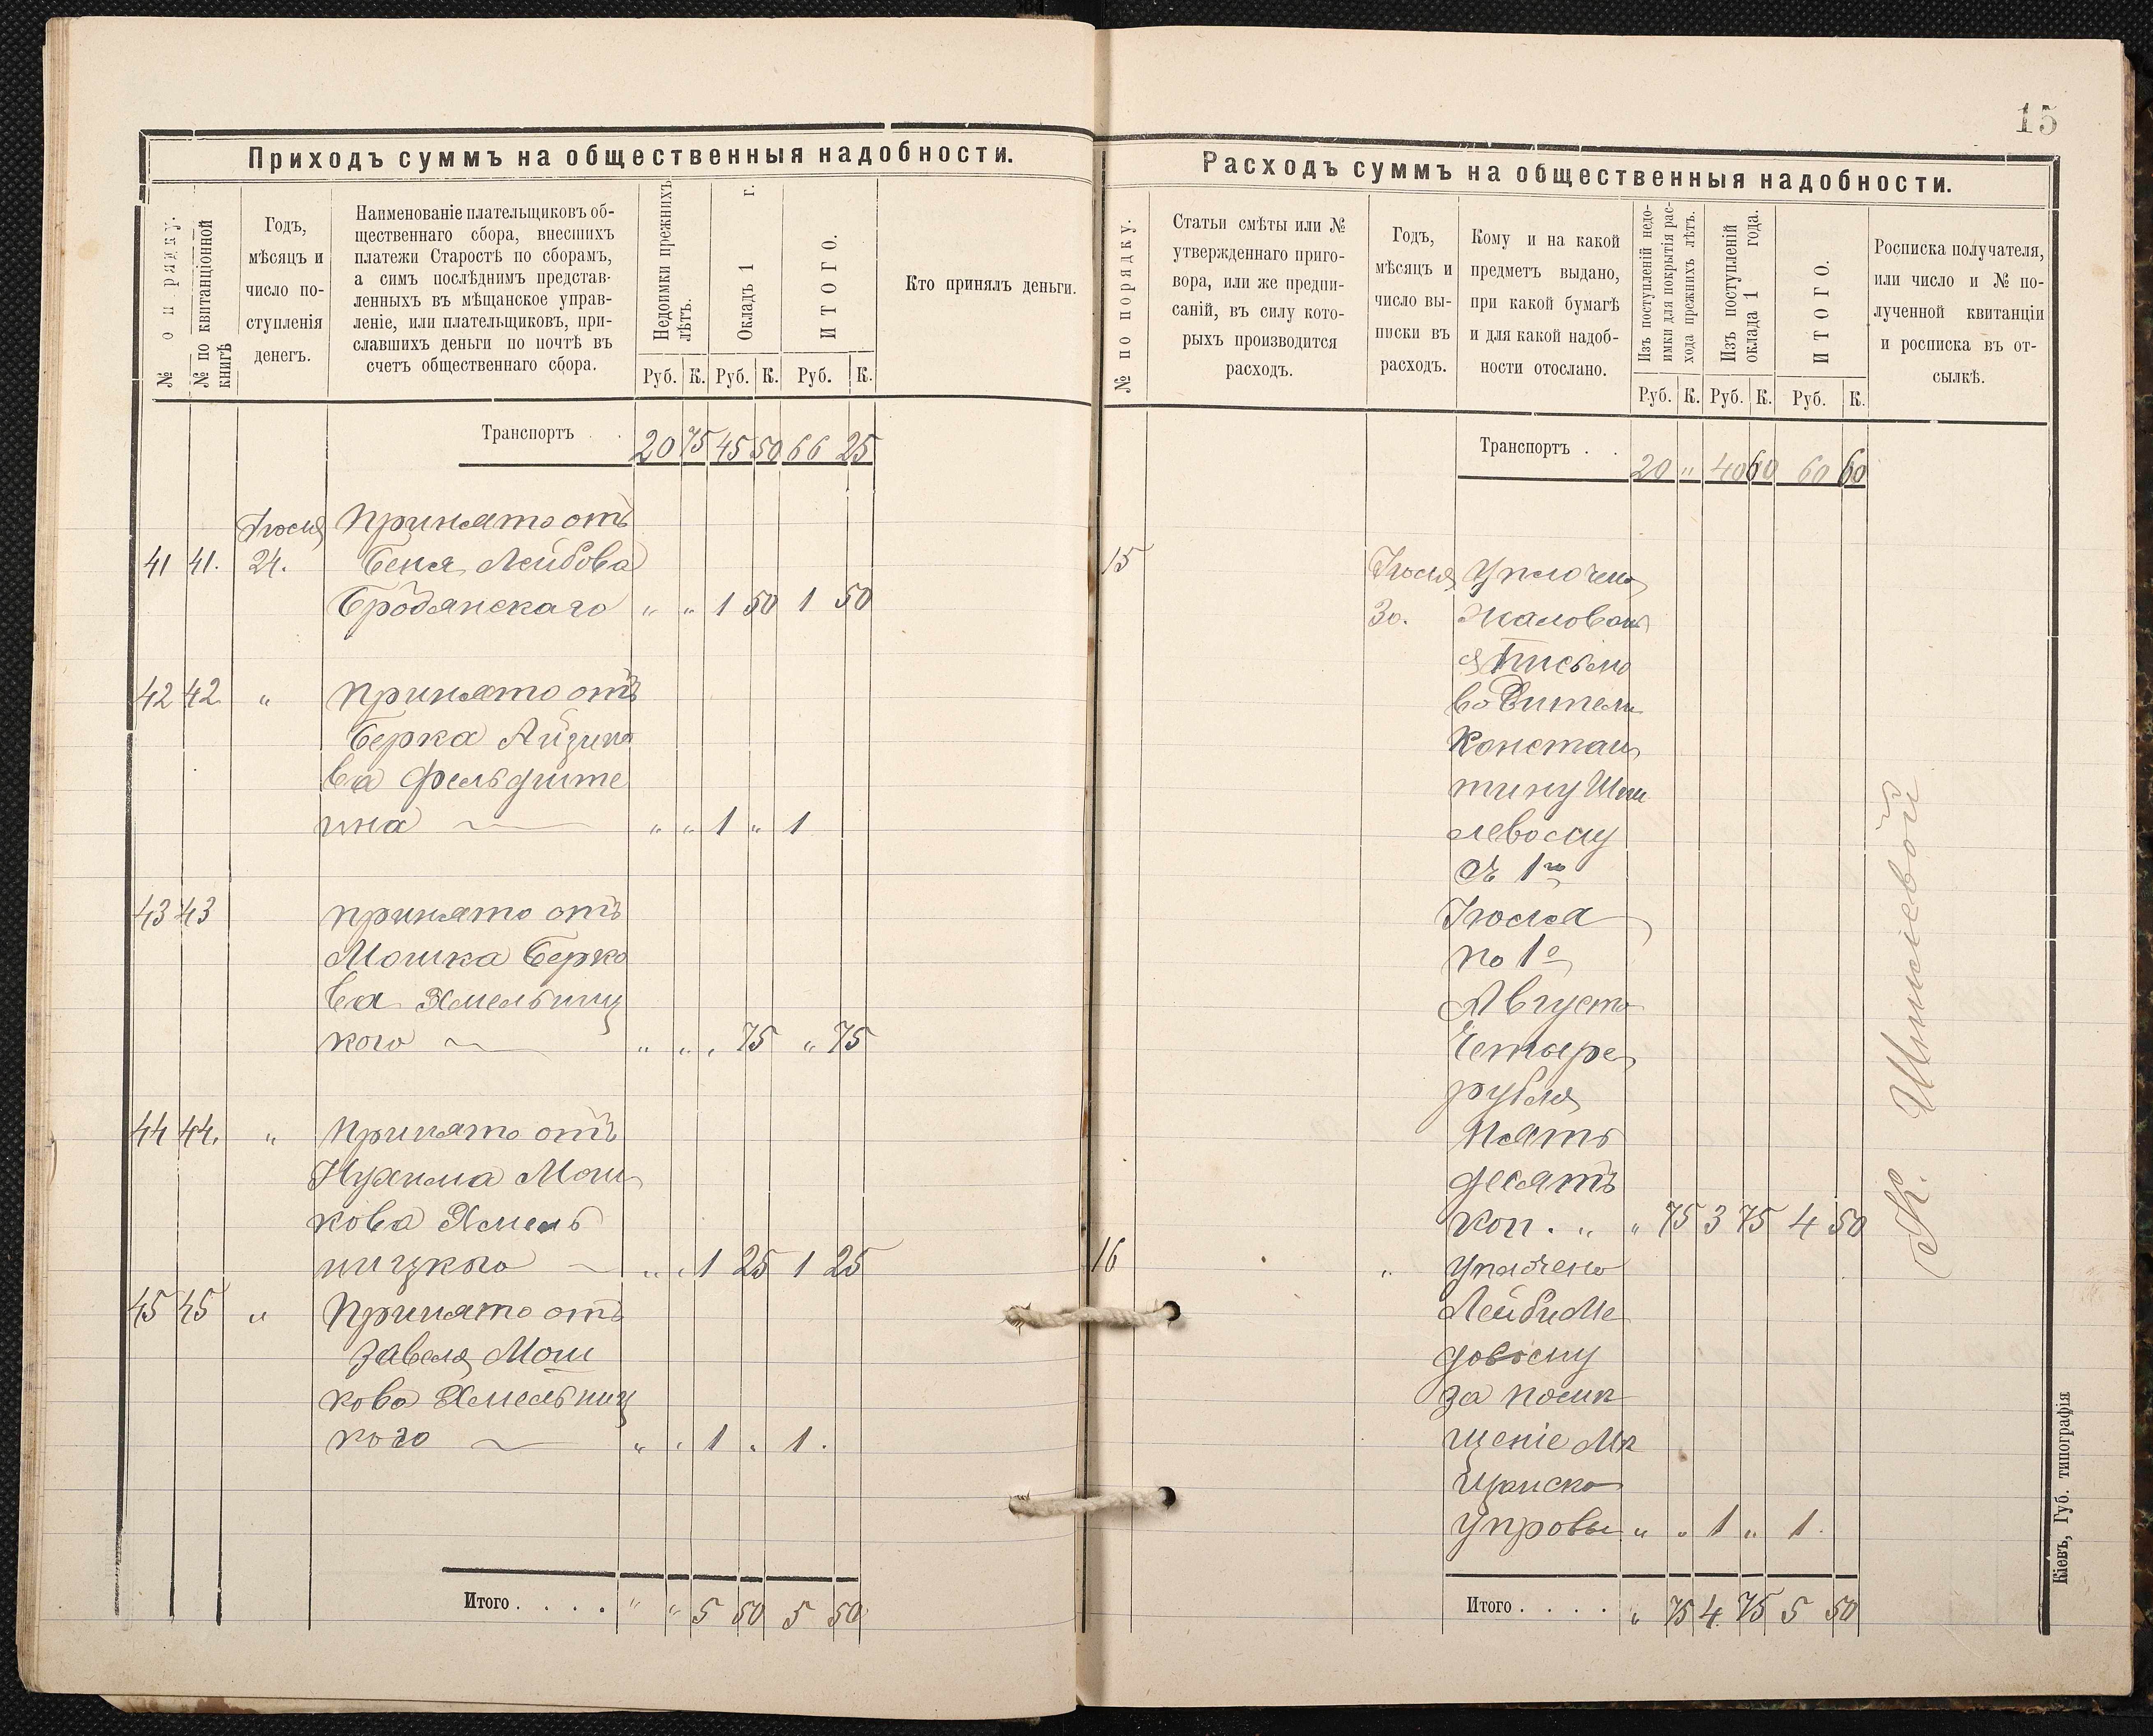 15
Приходъ суммъ на общественныя надобности.
№ по порядку.
№ по квитанціонной
книгѣ
Годъ,
мѣсяцъ и
число по-
ступленія
денегъ.
Наименованіе плательщиковъ об-
щественнаго сбора, внесшихъ
платежи Старостѣ по сборамъ,
а симъ послѣднимъ представ-
ленныхъ въ мѣщанское управ-
леніе, или плательщиковъ, при-
славшихъ деньги по почтѣ въ
счетъ общественнаго сбора.
Недоимки прежнихъ
лѣтъ.
Окладъ 1 г.
ИТОГО.
Кто принялъ деньги.
Руб. К. Руб. К. Руб. К.
Транспортъ . . 20 75 45 50 66 25
Іюля Принято отъ
41 41. 24. Беня Лейбова
Бродянскаго " " 1 50 1 50
42 42 " Принято отъ
Берка Айзико
ва Фельдште
ина " " 1 " 1
43 43 принято отъ
Мошка Берко
ва Хмельниц
кого " " " 75 " 75
44 44. " Принято отъ
Нухима Мош
кова Хмель
ницкого " " 1 25 1 25
45 45 " Принято отъ
Завеля Мош
кова Хмельниц
кого " " 1 " 1.
Итого . . . . " " 5 50 5 50
Расходъ суммъ на общественныя надобности.
№ по порядку.
Статьи смѣты или №
утвержденнаго приго-
вора, или же предпи-
саній, въ силу кото-
рыхъ производится
расходъ.
Годъ,
мѣсяцъ и
число вы-
писки въ
расходъ.
Кому и на какой
предметъ выдано,
при какой бумагѣ
и для какой надоб-
ности отослано.
Изъ поступленій недо-
имки для покрытія рас-
хода прежнихъ лѣтъ.
Изъ поступленій
оклада 1 года.
ИТОГО.
Росписка получателя,
или число и № по-
лученной квитанціи
и росписка въ от-
сылкѣ.
Руб. К. Руб. К. Руб. К.
Транспортъ . . 20 " 40 60 60 60
15 Іюля Уплочено
30. Жалован
я Письмо
водителю
Констан
тину
левому
съ 1го
Іюля
по 1е
Августа
Четыре
рубля
Пять
десятъ
коп. " " 75 3 75 4 50
16 " Уплочено
Лейби Ме
довому
за помѣ
щеніе Мѣ
щанско
управы " " 1 " 1.
Итого . . . . " 75 4 75 5 50
Кіевъ, Губ. типографія